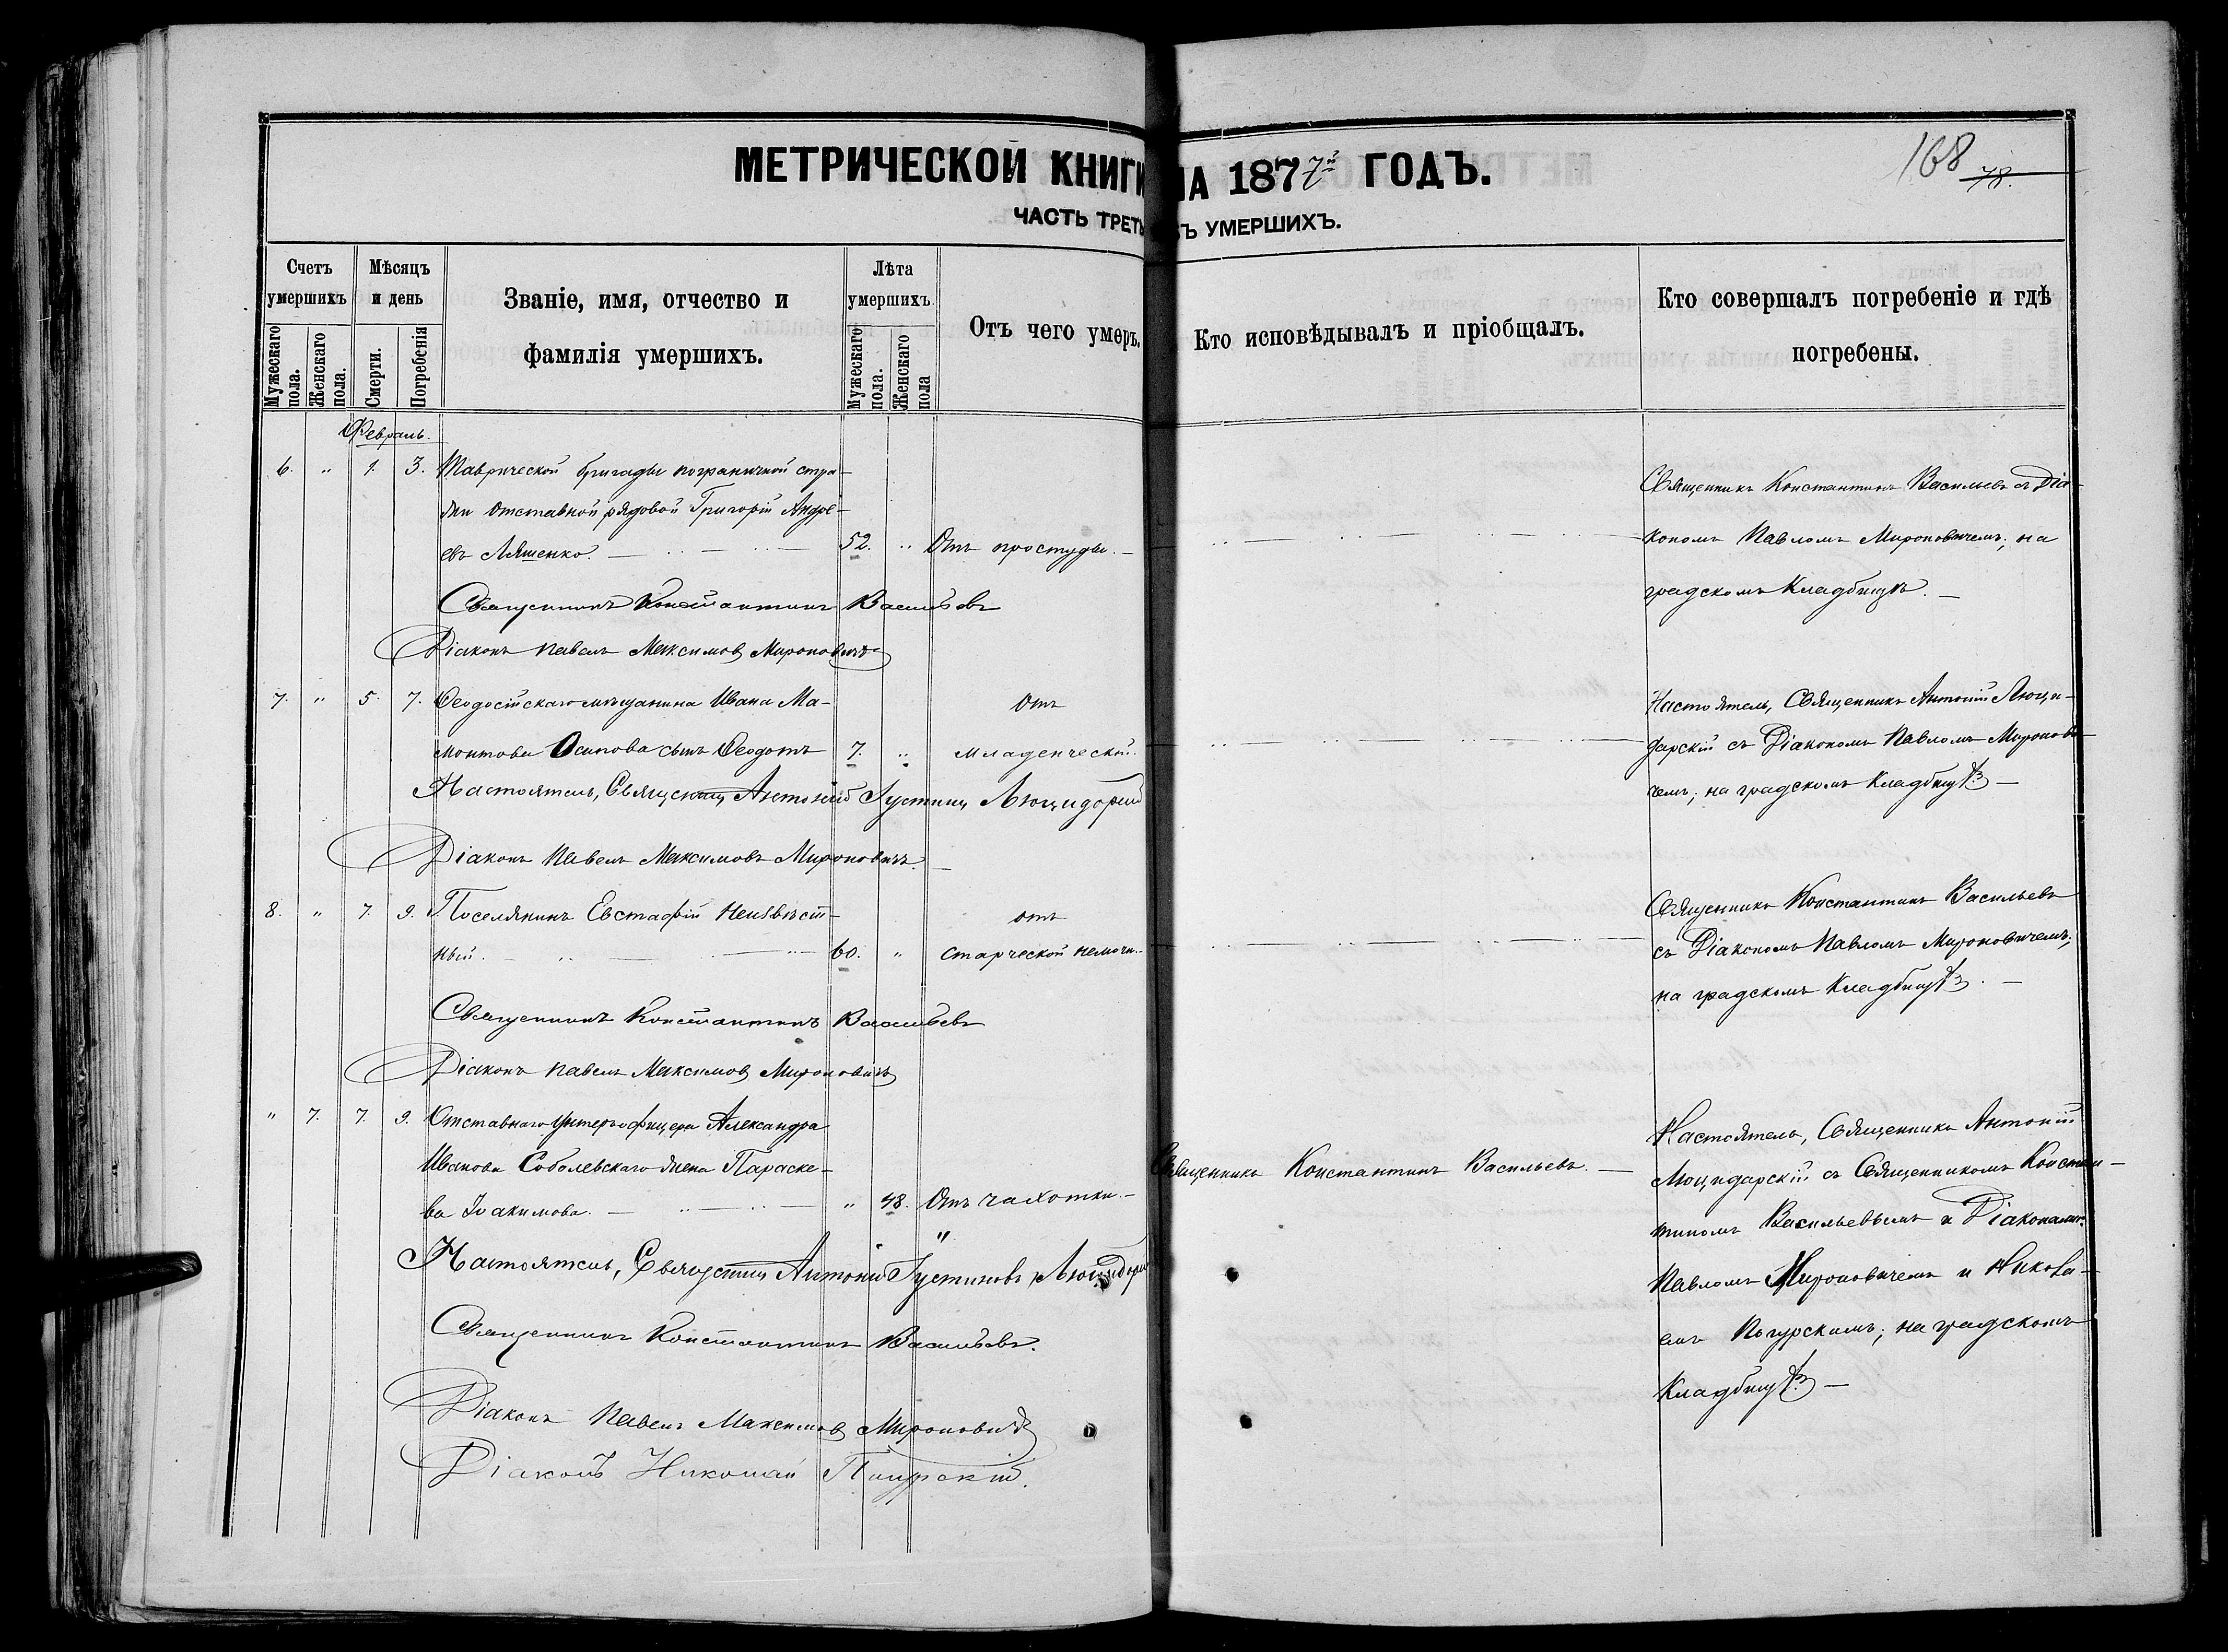 МЕТРИЧЕСКОЙ КНИГИ НА 1877й ГОДЪ.
168
78.
ЧАСТЬ ТРЕТЬ Ъ УМЕРШИХЪ.
Счетъ умершихъ
Мужескаго пола.
Женскаго пола.
Мѣсяцъ и день
Смерти.
Погребенія
Званіе, имя, отчество и
фамилія умершихъ.
Лѣта умершихъ.
Мужескаго пола.
Женскаго пола
Отъ чего умеръ.
Кто исповѣдывалъ и пріобщалъ.
Кто совершалъ погребеніе и гдѣ
погребены.
Февраль.
6. " 1. 3. Таврической бригады пограничной стра-
жи отставной рядовой Григорій Андре-
евъ Ляшенко. 52. " Отъ простуды.
Священникъ Константинъ Васильевъ съ Діа-
кономъ Павломъ Мироновичемъ; на
градскомъ Кладбищѣ.
Священникъ Константинъ Васильевъ
Діаконъ Павелъ Максимовъ Мироновичъ
7. " 5. 7. Ѳеодосійскаго мѣщанина Ивана Ма-
монтова Осипова сынъ Ѳеодотъ 7. " Отъ младенческой.
Настоятель, Священникъ Антоній Люци-
дарскій съ Діакономъ Павломъ Миронови-
чемъ; на градскомъ Кладбищѣ
Настоятель, Священникъ Антоній Іустиновъ Люцидарскій
Діаконъ Павелъ Максимовъ Мироновичъ.
8. " 7. 9. Поселянинъ Евстафій Неизвѣст-
ный. 60. " отъ старческой немочи.
Священникъ Константинъ Васильевъ
съ Діакономъ Павломъ Мироновичемъ;
на градскомъ Кладбищѣ.
Священникъ Константинъ Васильевъ
Діаконъ Павелъ Максимовъ Мироновичъ
" 7. 7. 9. Отставнаго Унтеръ-офицера Александра
Иванова Соболевскаго жена Параске-
ва Іоакимова. " 48. Отъ чахотки.
Священникъ Константинъ Васильевъ.
Настоятель, Священникъ Антоній
Люцидарскій съ Священникомъ Констан-
тиномъ Васильевымъ и Діаконами:
Павломъ Мироновичемъ и Никола-
емъ Погурскимъ; на градскомъ
Кладбищѣ
Настоятель, Священникъ Антоній Іустиновъ Люцидарскій
Священникъ Константинъ Васильевъ.
Діаконъ Павелъ Максимовъ Мироновичъ
Діаконъ Николай Погурскій.